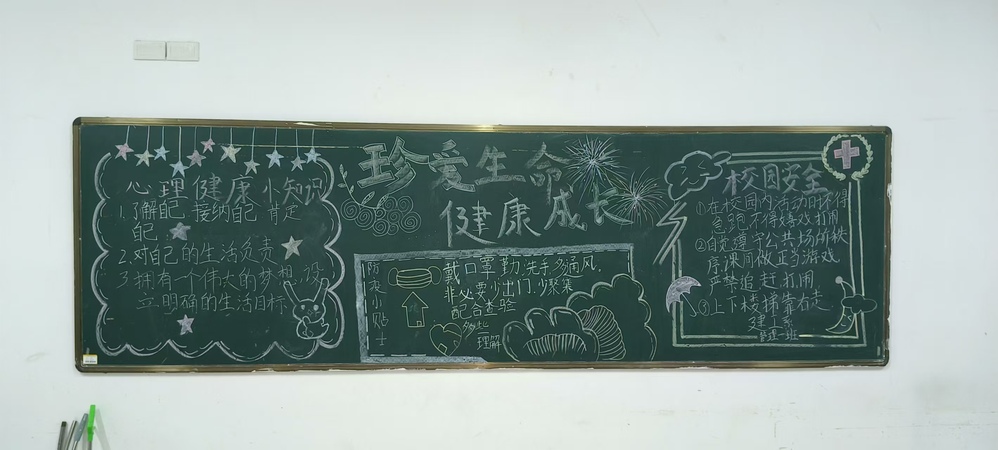 珍爱生命
健康成长
心理健康小知识
1.了解自己 接纳自己 肯定
自己
2.对自己的生活负责
3.拥有一个伟大的梦想,设
立明确的生活目标
防疫小贴士
戴口罩勤洗手多通风,
非必要少出门,少聚集
配合查验
多些
理解
校园安全
①在校园内活动时不得
急跑不得嬉戏打闹
②自觉遵守公共场所秩
序课间做正当游戏
严禁追赶打闹
③上下楼梯靠右走